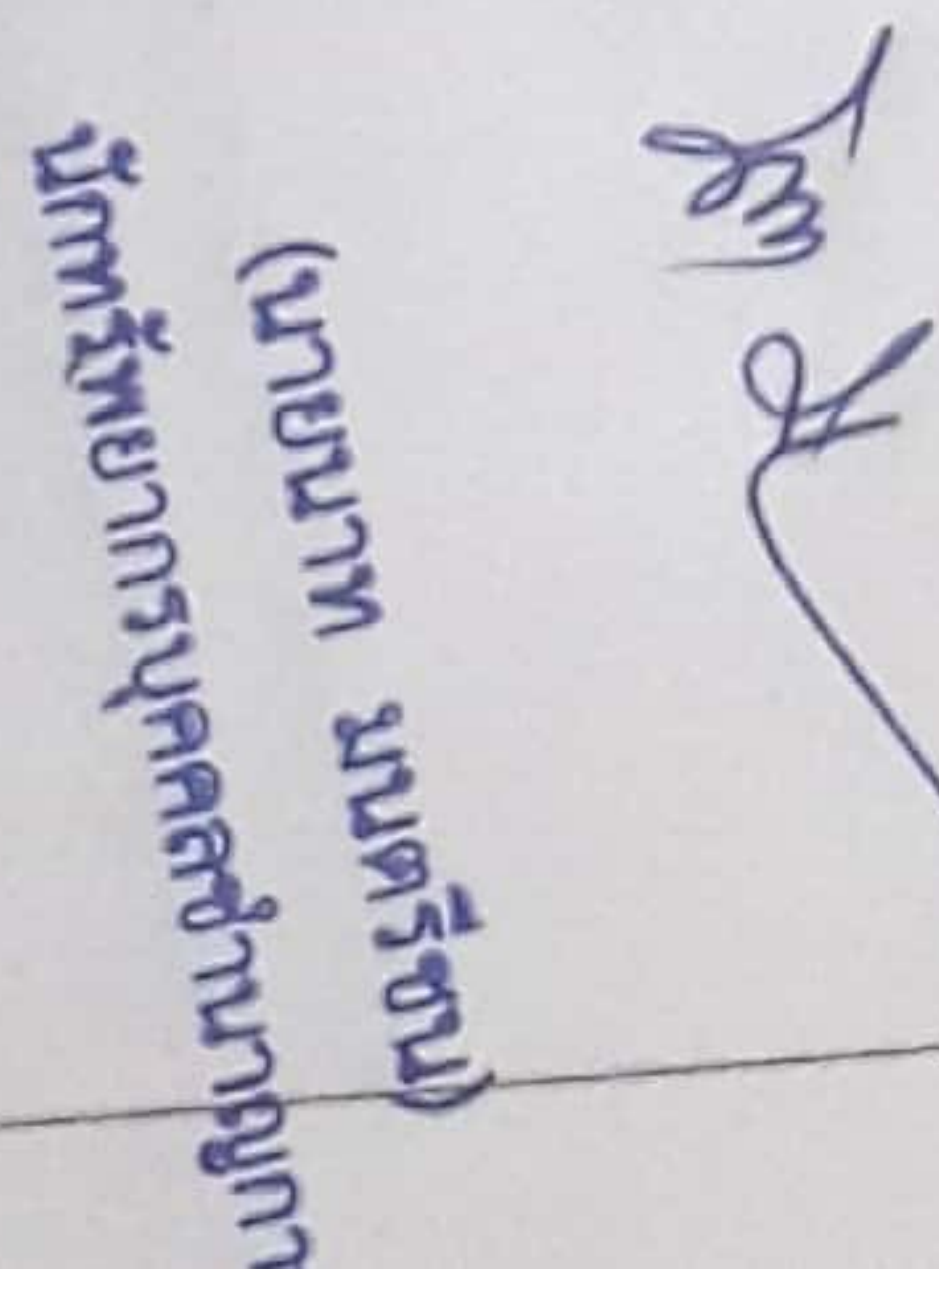 (นายนาท มนตรีชน)
นักทรัพยากรบุคคลชำนาญกา